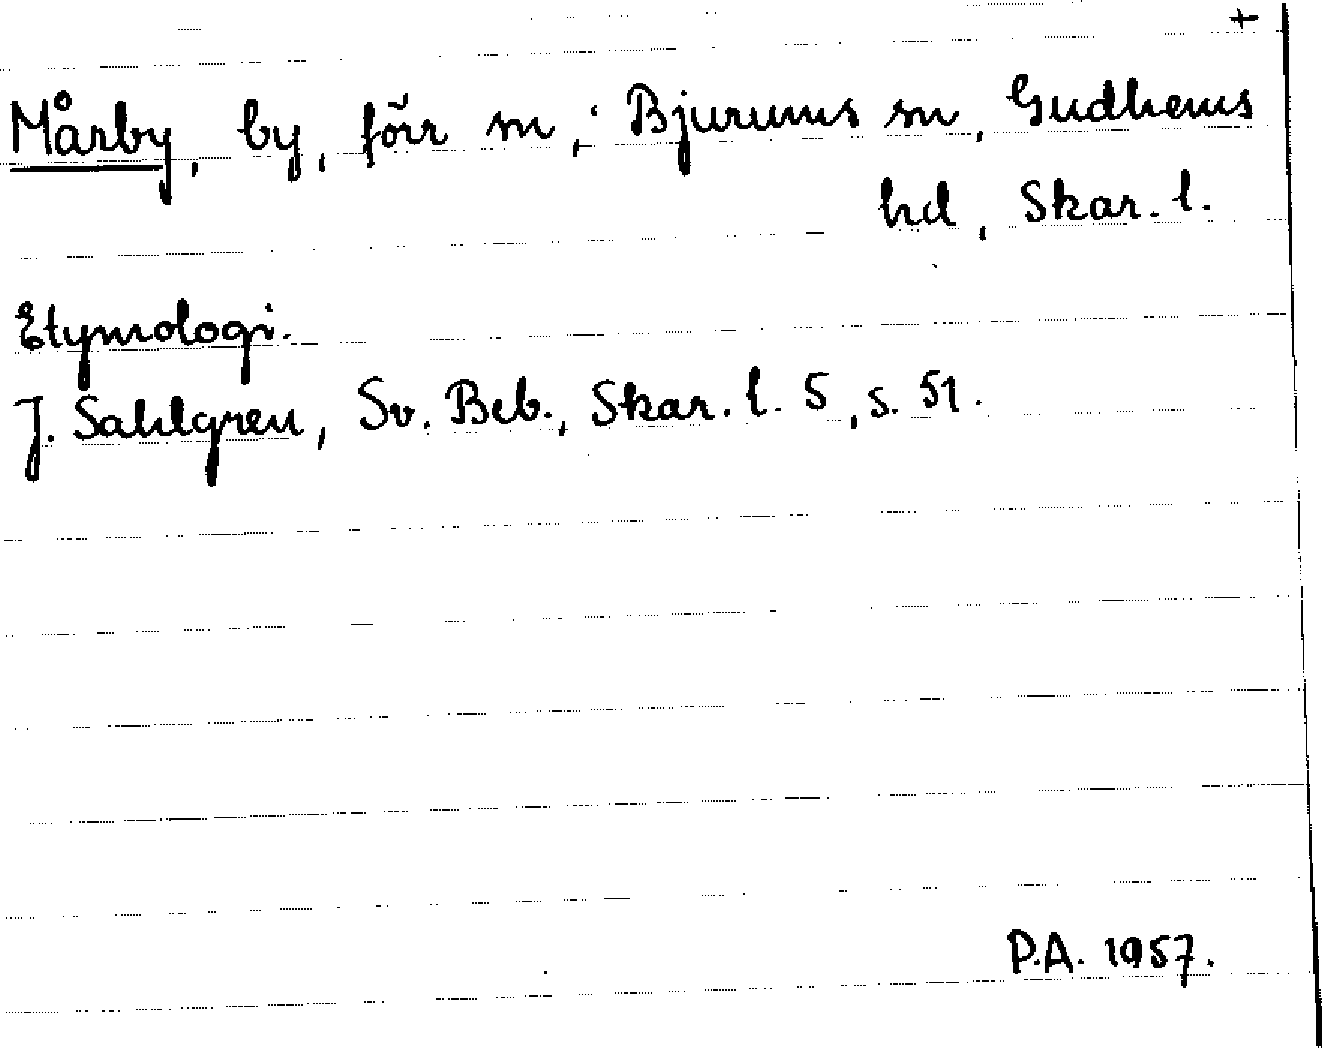 +
Mårby, by, förr sn, i Bjurums sn, Gudhems
hd, Skar. l.
Etymologi.
J. Sahlgren, Sv. Beb., Skar. l. 5, s. 51.
P.A. 1957.